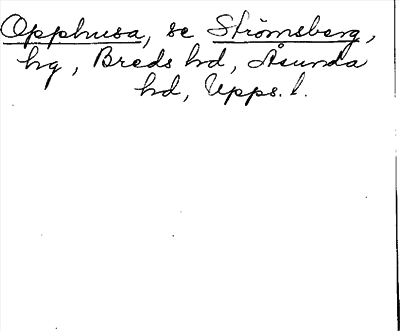 Opphusa, se Strömsberg,
hg, Breds hd, Åsunda
hd, Upps. l.